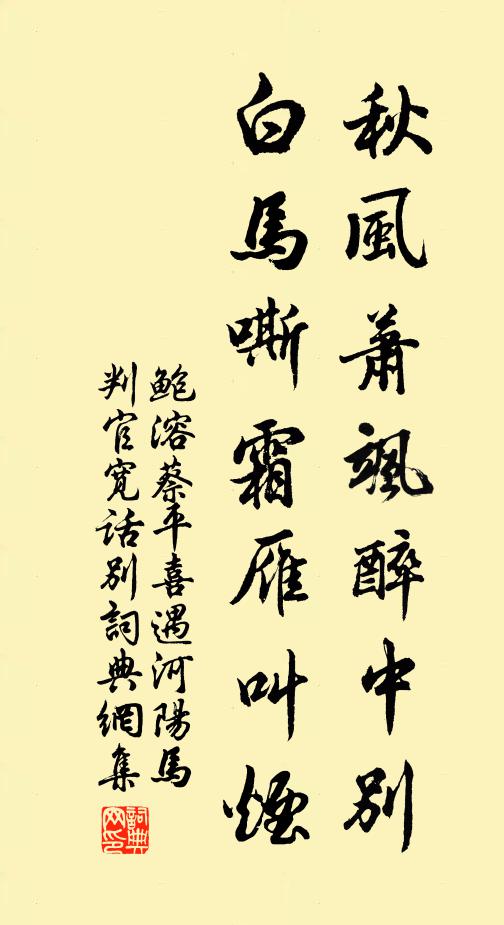 秋風蕭颯醉中別
白馬嘶霜雁叫煙
鮑溶蔡平喜遇河陽馬
判官寬話別詞典網集
詞典
网印